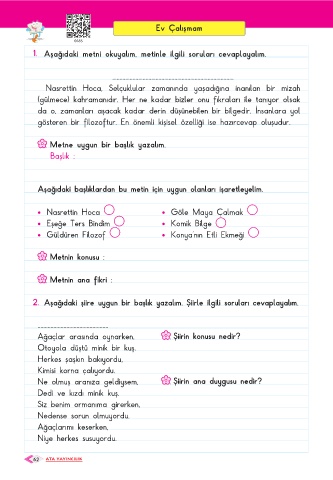 Ev Çalışmam
1. Aşağıdaki metni okuyalım, metinle ilgili soruları cevaplayalım.
Nasrettin Hoca, Selçuklular zamanında yaşadığına inanılan bir mizah
(gülmece) kahramanıdır. Her ne kadar bizler onu fıkraları ile tanıyor olsak
da o, zamanları aşacak kadar derin düşünebilen bir bilgedir. İnsanlara yol
gösteren bir filozoftur. En önemli kişisel özelliği ise hazırcevap oluşudur.
Metne uygun bir başlık yazalım.
Başlık :
Aşağıdaki başlıklardan bu metin için uygun olanları işaretleyelim.
• Nasrettin Hoca
• Göle Maya Çalmak
• Eşeğe Ters Bindim
• Komik Bilge
• Güldüren Filozof
• Konya'nın Etli Ekmeği
Metnin konusu :
Metnin ana fikri :
2. Aşağıdaki şiire uygun bir başlık yazalım. Şiirle ilgili soruları cevaplayalım.
Ağaçlar arasında oynarken,
Otoyola düştü minik bir kuş.
Herkes şaşkın bakıyordu,
Kimisi korna çalıyordu.
Ne olmuş aranıza geldiysem,
Dedi ve kızdı minik kuş.
Siz benim ormanıma girerken,
Nedense sorun olmuyordu.
Ağaçlarımı keserken,
Niye herkes susuyordu.
Şiirin konusu nedir?
Şiirin ana duygusu nedir?
62 ATA YAYINCILIK